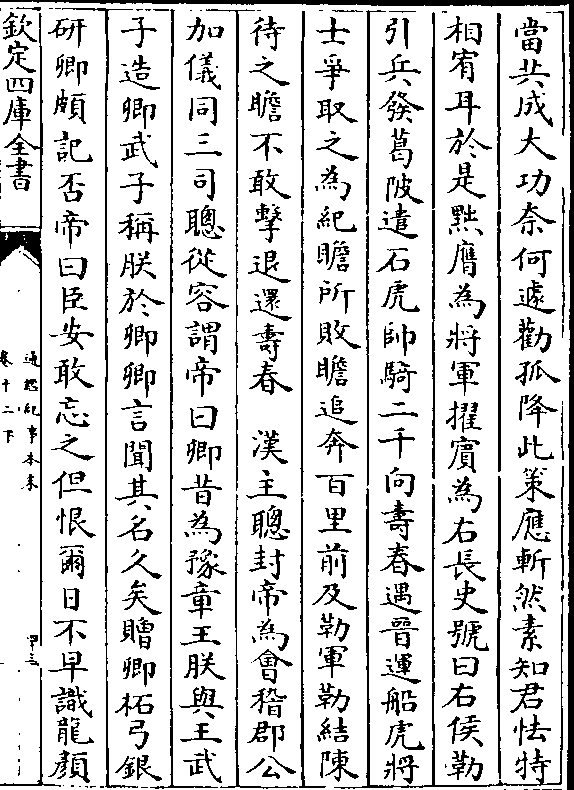 當共成大功奈何遽勸孤降此策應斬然素知君怯特
相宥耳於是黜膺為將軍擢賓為右長史號曰右侯勒
引兵發葛陂遣石虎帥騎二千向壽春遇晉運船虎將
士爭取之為紀瞻所敗瞻追奔百里前及勒軍勒結陳
待之瞻不敢擊退還壽春　漢主聰封帝為會稽郡公
加儀同三司聰從容謂帝曰卿昔為豫章王朕與王武
子造卿武子稱朕於卿卿言聞其名久矣贈卿柘弓銀
研卿頗記否帝曰臣安敢忘之但恨爾日不早識龍顏
欽定四庫全書
通鑑紀事本末
卷十二下